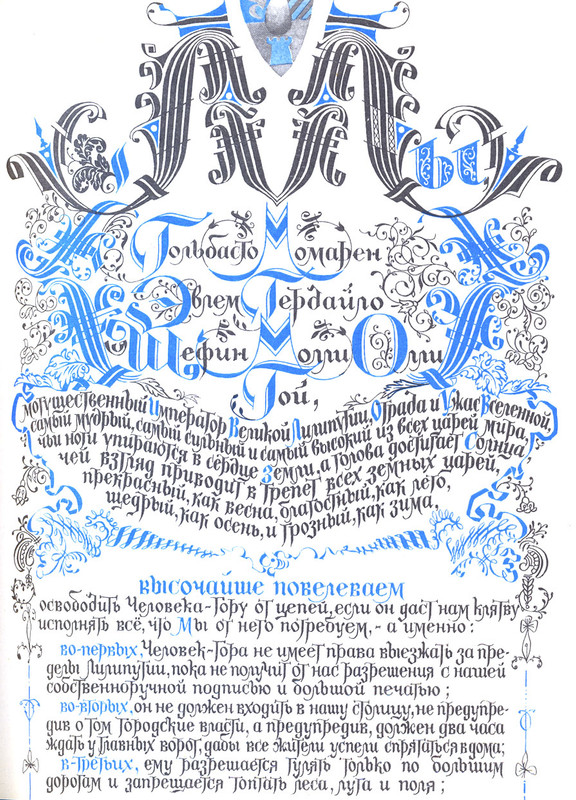 Мы,
Гольбасто Момарен
Эвлем Гердайло
Шефин Молли Олли
Гой,
могущественный Император Великой Лилипутии, Отрада и Ужас Вселенной,
самый мудрый, самый сильный и самый высокий из всех царей мира,
чьи ноги упираются в сердце Земли, а голова достигает Солнца,
чей взгляд приводит в трепет всех земных царей,
прекрасный, как весна, благостный, как лето,
щедрый, как осень, и грозный, как зима,
высочайше повелеваем
освободить Человека-Гору от цепей, если он даст нам клятву
исполнять всё, что Мы от него потребуем, - а именно:
во-первых, Человек-Гора не имеет права выезжать за пре-
делы Лилипутии, пока не получит от нас разрешения с нашей
собственноручной подписью и большой печатью;
во-вторых, он не должен входить в нашу столицу, не предупре-
див о том городские власти, а предупредив, должен два часа
ждать у главных ворот, дабы все жители успели спрятаться в дома;
в-третьих, ему разрешается гулять только по большим
дорогам и запрещается топтать леса, луга и поля;